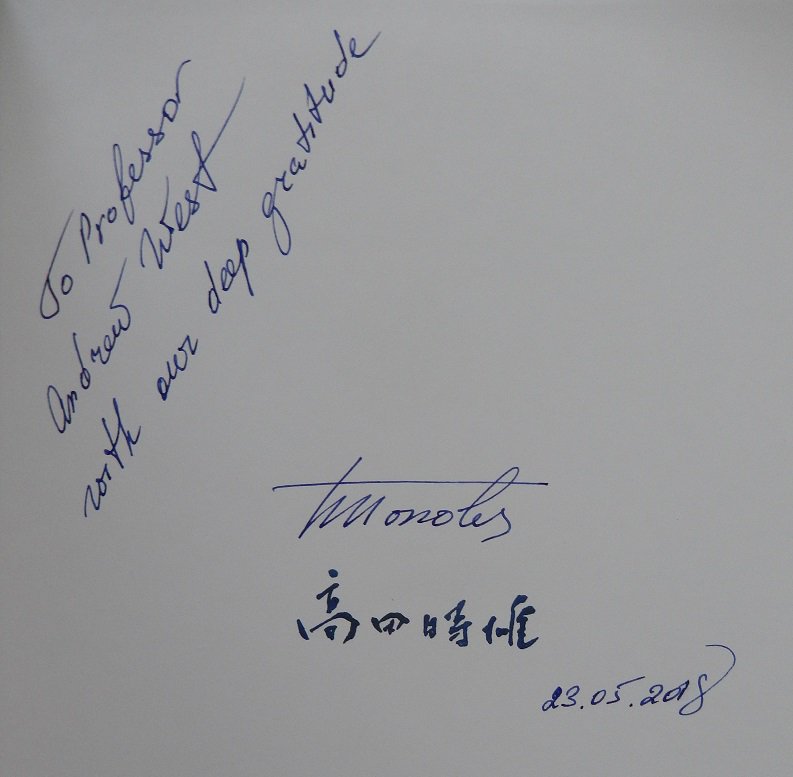 To Professor
Andrew West
with our deep gratitude
高田時雄
23.05.2018